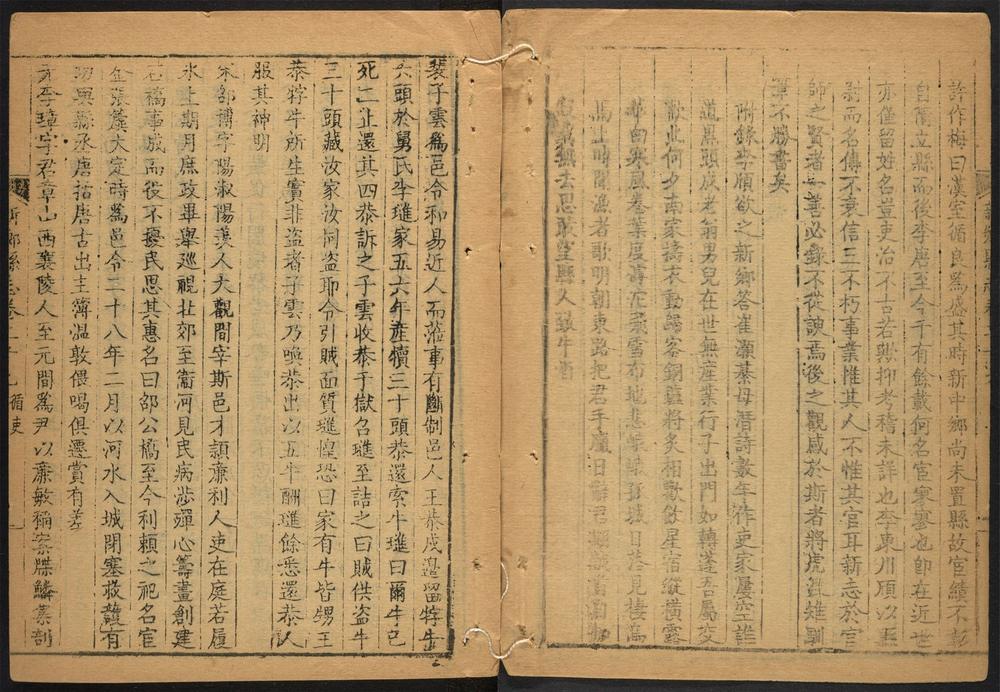 許作梅曰漢室循良爲盛其時新中鄉尚未置縣故官績不彰
自隋立縣而後李唐至今千有餘載何名宦寥寥也卽在近世
亦僅留姓名豈吏治不古若歟抑考稽未詳也李東川頎以
尉而名傳不衰信三不朽事業惟其人不惟其官耳新志於官
師之賢者一善必錄不從諛焉後之觀感於斯者將虎雉馴
筆不勝書矣
附錄李頎欲之新鄉答崔顥綦毋潛詩數年作吏家屢空誰
道黑頭成老翁男兒在世無産業行子出門如轉蓬吾屬交
歡此何夕南家擣衣動歸客銅鑪將炙相歡飲星宿縱橫露
華白寒風卷葉度滹沱飛雪布地悲峩峩孤城日落見棲烏
馬上時聞漁者歌明朝東路把君手臘日辭君期歲首自知
寂寞無去思敢望縣人致牛酒
裴子雲爲邑令和易近人而蒞事有斷制邑人王恭戍邊留牸牛
六頭於舅氏李璡家五六年産犢三十頭恭還索牛璡曰爾牛已
死二止還其四恭訴之子雲收恭于獄召璡至詰之曰賊供盜牛
三十頭藏汝家汝同盜耶令引賊面質璡惶恐曰家有牛皆甥王
恭牸牛所生實非盜者子雲乃喚恭出以五牛酬璡餘悉還恭人
服其神明
宋邵博字陽淑陽羡人大觀間宰斯邑才頴廉利人吏在庭若履
氷土期月庶政畢舉巡視北郊至衞河見民病涉殫心籌畫創建
石橋事成而役不擾民思其惠名曰邵公橋至今利頼之祀名宦
金張簏大定時爲邑令二十八年二月以河水入城閉塞救護有
功與縣丞唐括唐古出主簿溫敦偎喝俱遷賞有差
元李璋字君章山西襄陵人至元間爲尹以廉敏稱案牒鱗集剖
新鄉縣志卷二十九 循吏